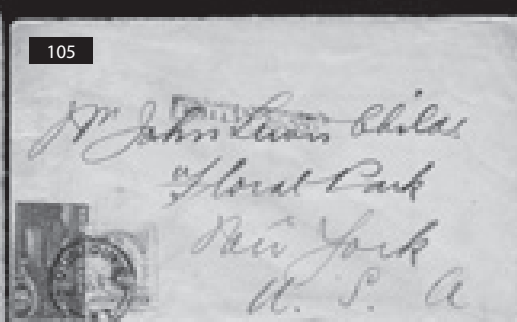 105
Mr John Lewis Childs
"Floral Park
New York
U. S. A